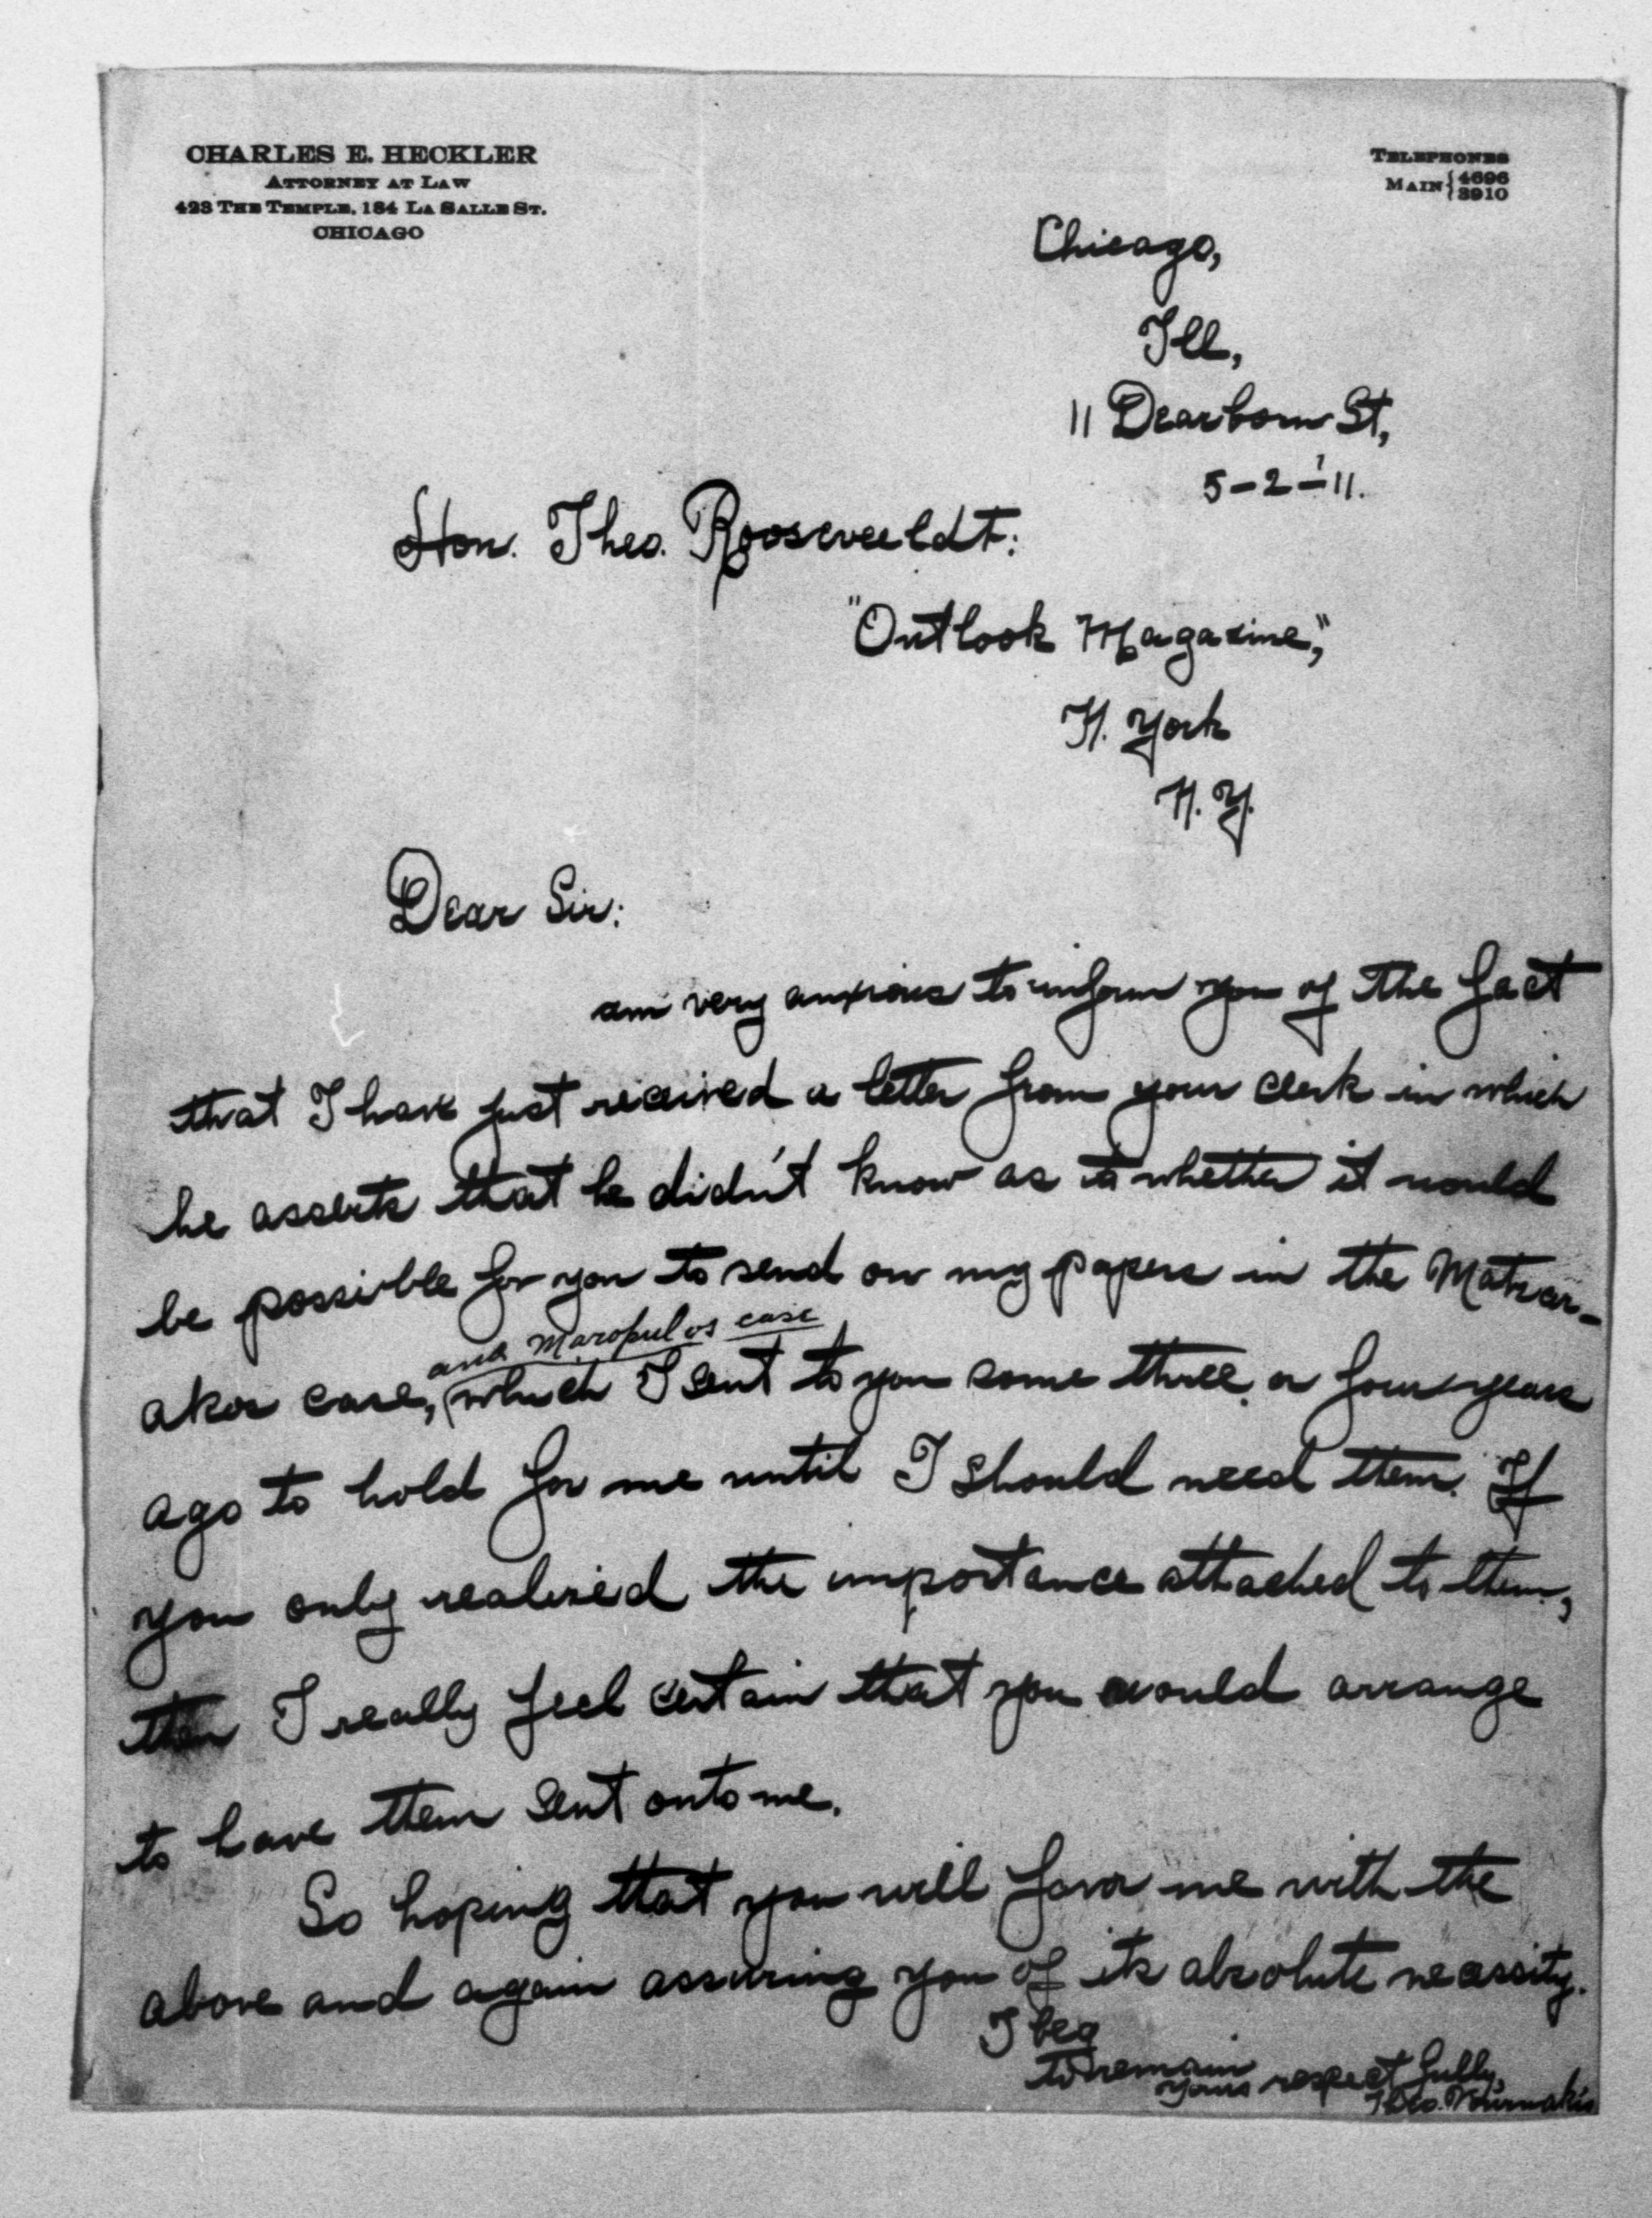 CHARLES E. HECKLER
ATTORNEY AT LAW
423 THE TEMPLE, 184 LA SALLE ST.
CHICAGO
TELEPHONES
MAIN { 4696
3910
Chicago,
Ill,
11 Dearborn St,
5-2-'11.
Hon. Theo. Rooseveeldt:
"Outlook Magazine,"
N. York
N. Y.
Dear Sir:
am very anxious to inform you of the fact
that I have just received a letter from your clerk in which
he asserts that he didn't know as to whether it would
be possible for you to send on my papers in the
and Maropulos case
akos case, (which I sent to you some three or four years
ago to hold for me until I should need them. If
you only realized the importance attached to them,
then I really feel certain that you would arrange
to have them sent onto me.
So hoping that you will favor me with the
above and again assuring you of its absolute necessity.
I beg
to remain
yours respectfully,
Theo.